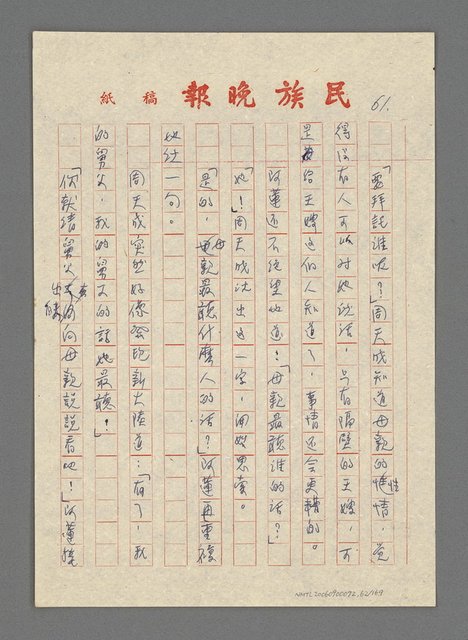 民族晚報 稿紙
61.
「要拜託誰呢?」周天成知道母親的性情,
得沒有人可以對她說話,只有隔壁的王嫂,可
是給王嫂這個人知道了,事情還會更糟的。
阿蓮還不絕望地道:「母親最聽誰的話?」
「她」!周天成沈出這一字,開始思索。
「是的,母親最聽什麼人的話?」阿蓮再重複
她的一句。
周天成突然好像發現新大陸道:「有了,我
的舅父,我的舅父的話她最聽!」
「你就請舅父去出條向母親說說看吧!」阿蓮
NMTL20060900072, 62/169